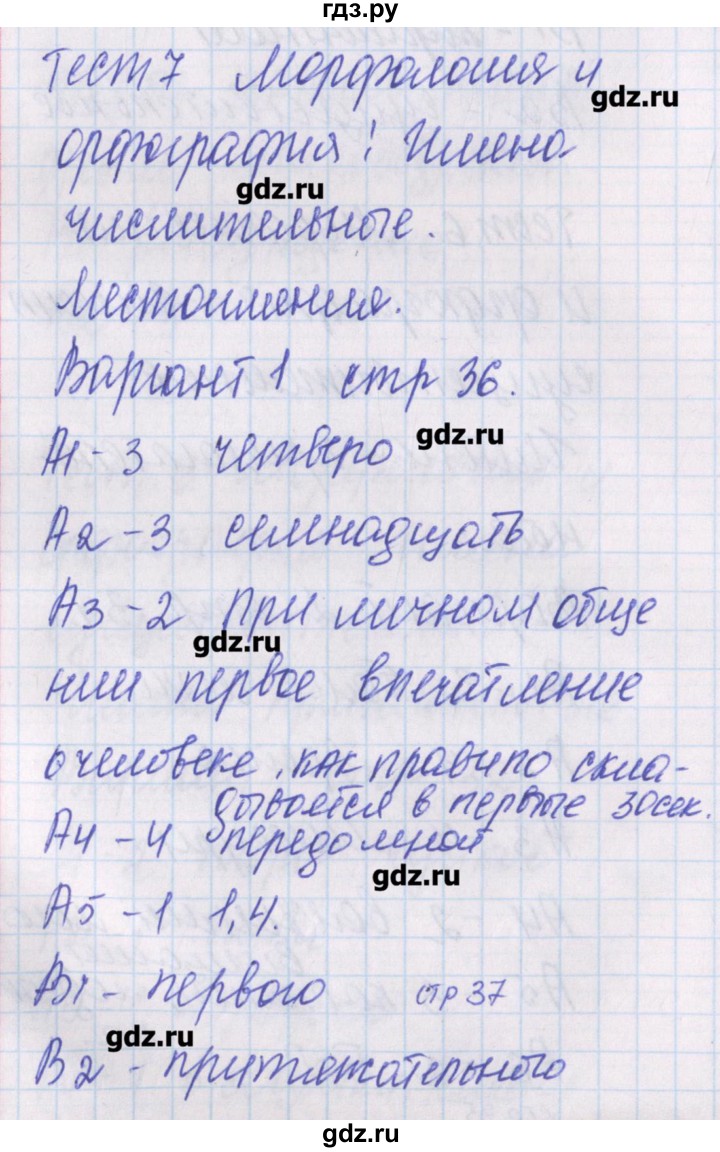 гдз.ру
Тест 7 Морфология и
gdz.ru
орфография! Имена
gdz.ru
числительные.
Местоимения.
Вариант 1 стр 36.
gdz.ru
А1 - 3 четверо
А2 - 3 семнадцать
А3 - 2 При личном обще
gdz.ru
нии первое впечатление
о человеке, как правило скла-
дывается в первые 30 сек.
А4 - 4 передо мной
gdz.ru
А5 - 1 1,4.
В1 - первого стр 37
gdz.ru
В2 - притяжательного
gdz.ru